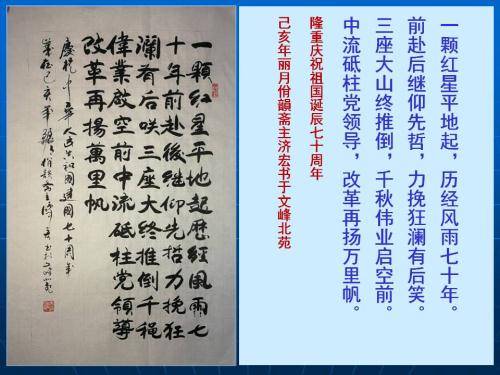 一顆红星平地起歷經風雨七
十年前赴後继仰先哲力挽狂
瀾有后咲三座大终推倒千穐
偉業啟空前中流砥柱党領導
改革再揚萬里帆
慶祝中華人民共和國建國七十周年
歲在己亥年
一颗红星平地起，历经风雨七十年。
前赴后继仰先哲，力挽狂澜有后笑。
三座大山终推倒，千秋伟业启空前。
中流砥柱党领导，改革再扬万里帆。
隆重庆祝祖国诞辰七十周年
己亥年丽月佾韻斋主济宏书于文峰北苑